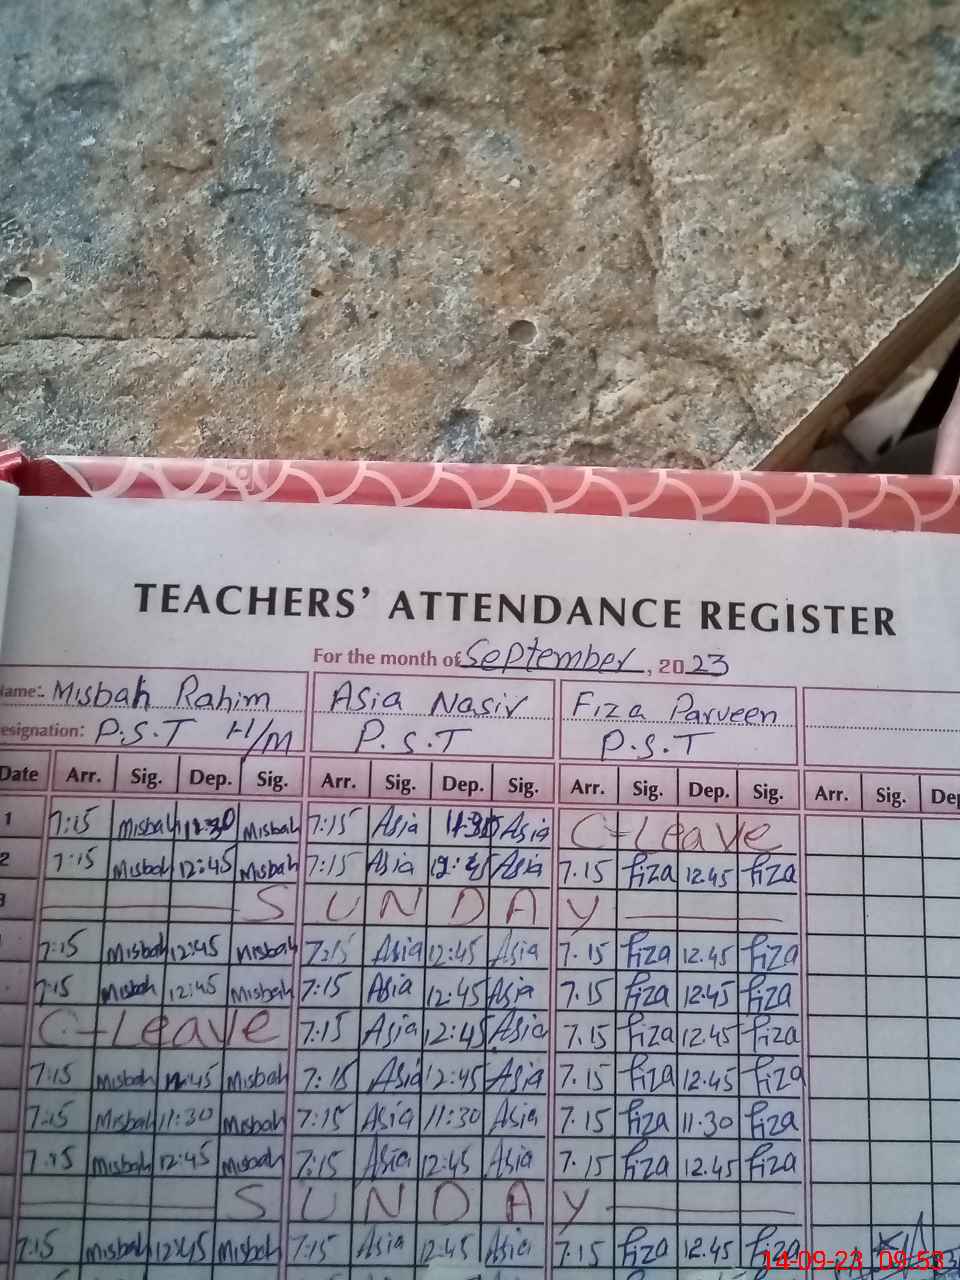 TEACHERS' ATTENDANCE REGISTER
For the month of September, 2023
Name: Misbah Rahim Asia Nasir Fiza Parveen
Designation: P.S.T H/M P.S.T P.S.T
Date Arr. Sig. Dep. Sig. Arr. Sig. Dep. Sig. Arr. Sig. Dep. Sig. Arr. Sig. Dep
1 7:15 Misbah 11:30 Misbah 7:15 Asia 11:30 Asia C-Leave
2 7:15 Misbah 12:45 Misbah 7:15 Asia 12:45 Asia 7.15 Fiza 12.45 Fiza
3 SUNDAY
7:15 Misbah 12:45 Misbah 7:15 Asia 12:45 Asia 7.15 Fiza 12.45 Fiza
7:15 Misbah 12:45 Misbah 7:15 Asia 12:45 Asia 7.15 Fiza 12.45 Fiza
C-Leave 7:15 Asia 12:45 Asia 7.15 Fiza 12.45 Fiza
7:15 Misbah 12:45 Misbah 7:15 Asia 12:45 Asia 7.15 Fiza 12.45 Fiza
7:15 Misbah 11:30 Misbah 7:15 Asia 11:30 Asia 7.15 Fiza 11.30 Fiza
7:15 Misbah 12:45 Misbah 7:15 Asia 12:45 Asia 7.15 Fiza 12.45 Fiza
SUNDAY
7:15 Misbah 12:45 Misbah 7:15 Asia 12:45 Asia 7.15 Fiza 12.45 Fiza
14-09-23 09:53